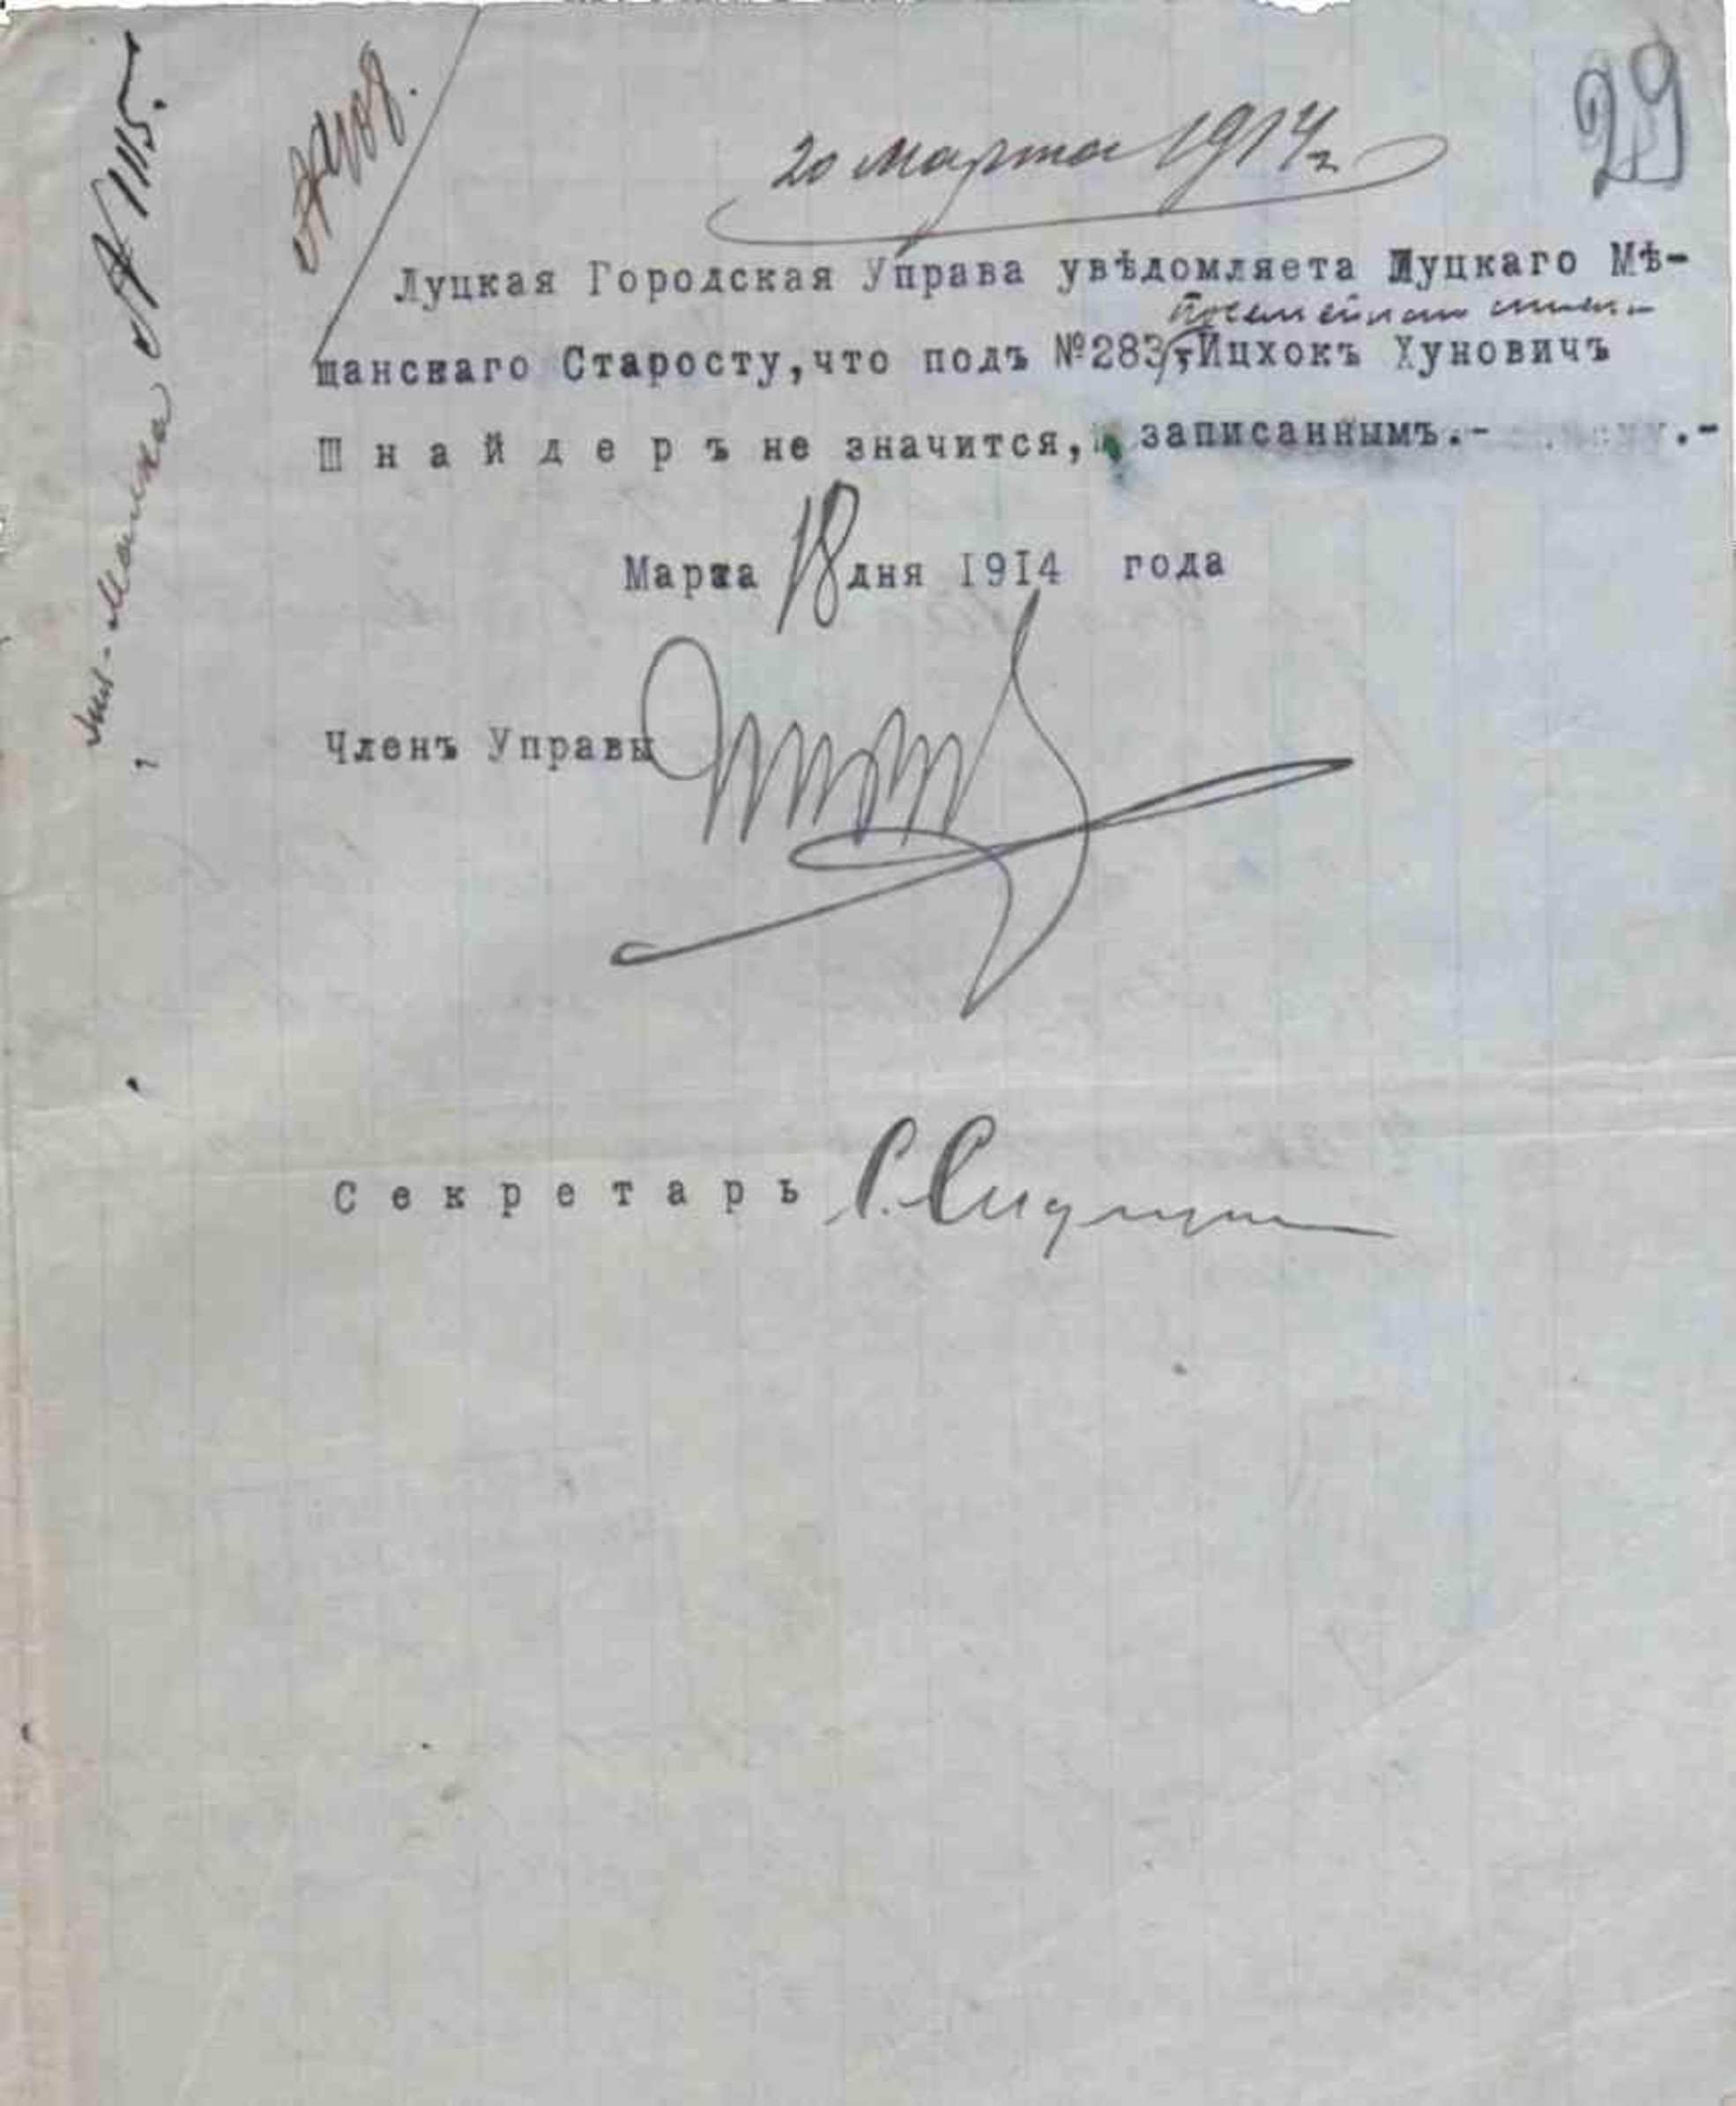 29
20 марта 1914 г
Луцкая Городская Управа увѣдомляета Луцкаго Мѣ-
посемейнаго
щанскаго Старосту,что подъ №283,Ицхокъ Хуновичъ
Ш н а й д е р ъ не значится, записаннымъ.- .-
Марта 18 дня 1914 года
Членъ Управы
С е к р е т а р ь
№ 1115.